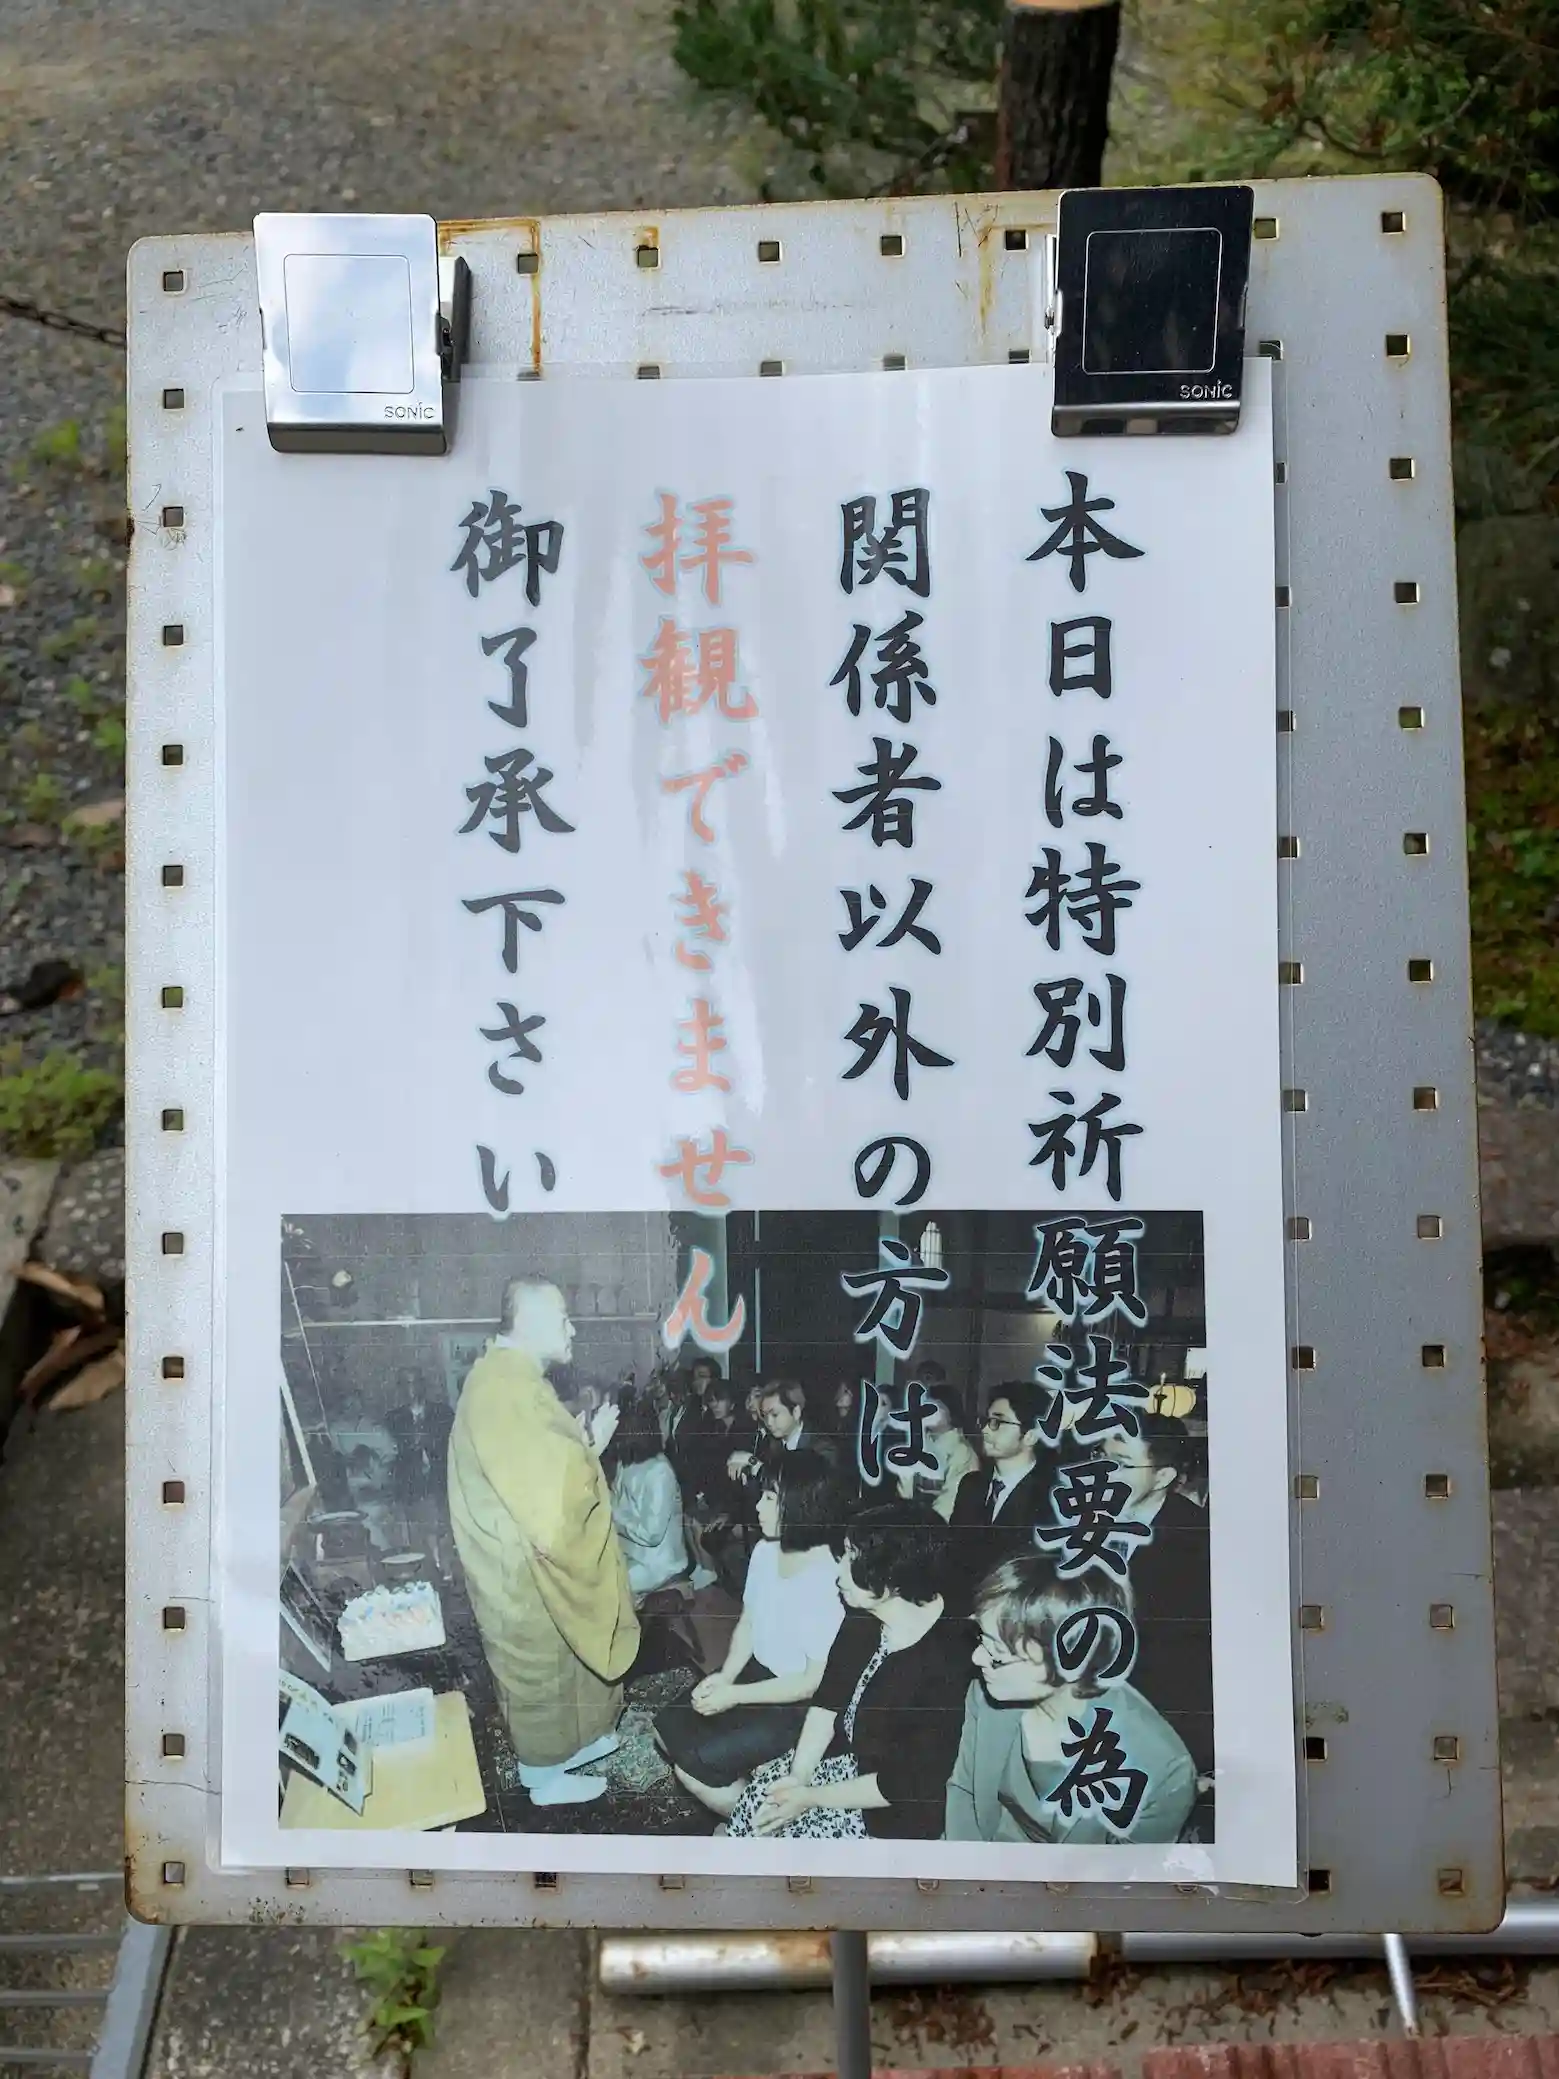 本日は特別祈願法要の為
関係者以外の方は
拝観できません
御了承下さい
SONiC
SONiC